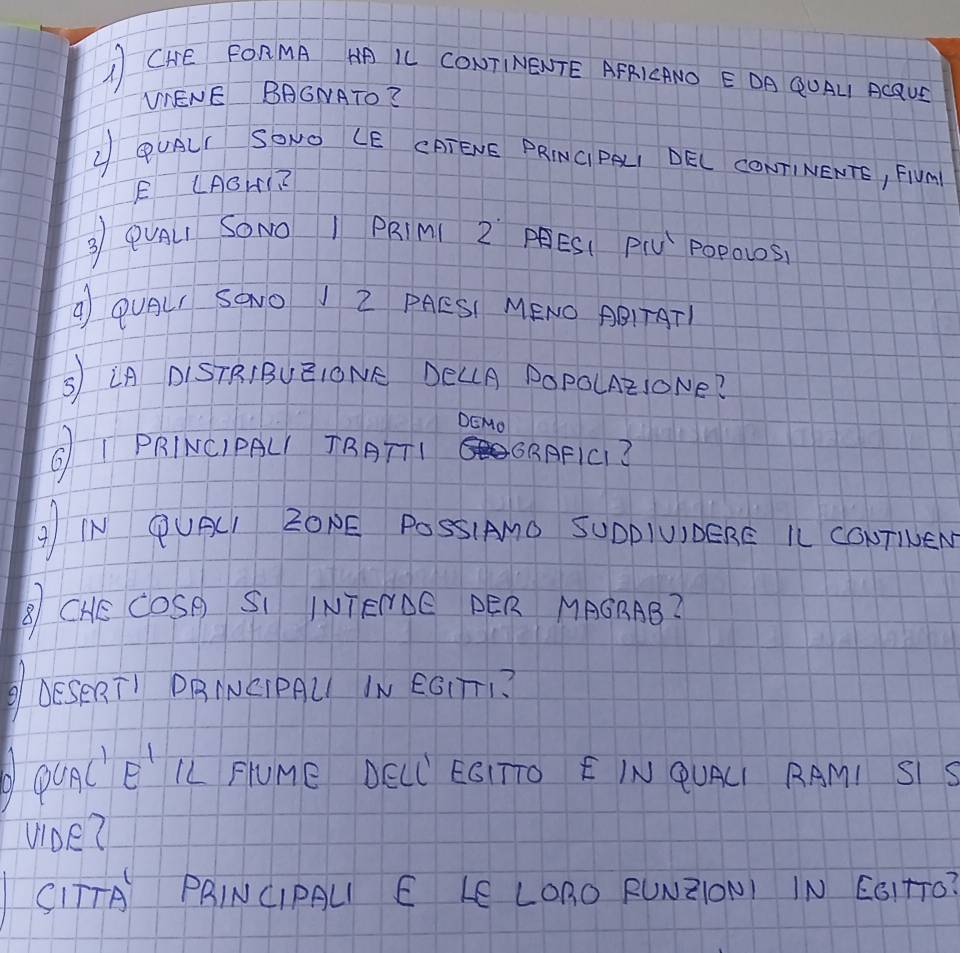 1) CHE FORMA HA IL CONTINENTE AFRICANO E DA QUALI ACQUE
VIENE BAGNATO?
2) QUALI SONO LE CATENE PRINCIPALI DEL CONTINENTE, FIUMI
E LAGHI?
3) QUALI SONO I PRIMI 2 PAESI PIU' POPOLOSI
4) QUALI SONO I 2 PAESI MENO ABITATI
5) LA DISTRIBUZIONE DELLA POPOLAZIONE?
6) I PRINCIPALI TRATTI DEMOGRAFICI?
7) IN QUALI ZONE POSSIAMO SUDDIVIDERE IL CONTINEN
8) CHE COSA SI INTENDE PER MAGRAB?
9) DESERTI PRINCIPALI IN EGITTI?
0) QUAL' E' IL FIUME DELL' EGITTO E IN QUALI RAMI SI S
VIDE?
) CITTA' PRINCIPALI E LE LORO FUNZIONI IN EGITTO?